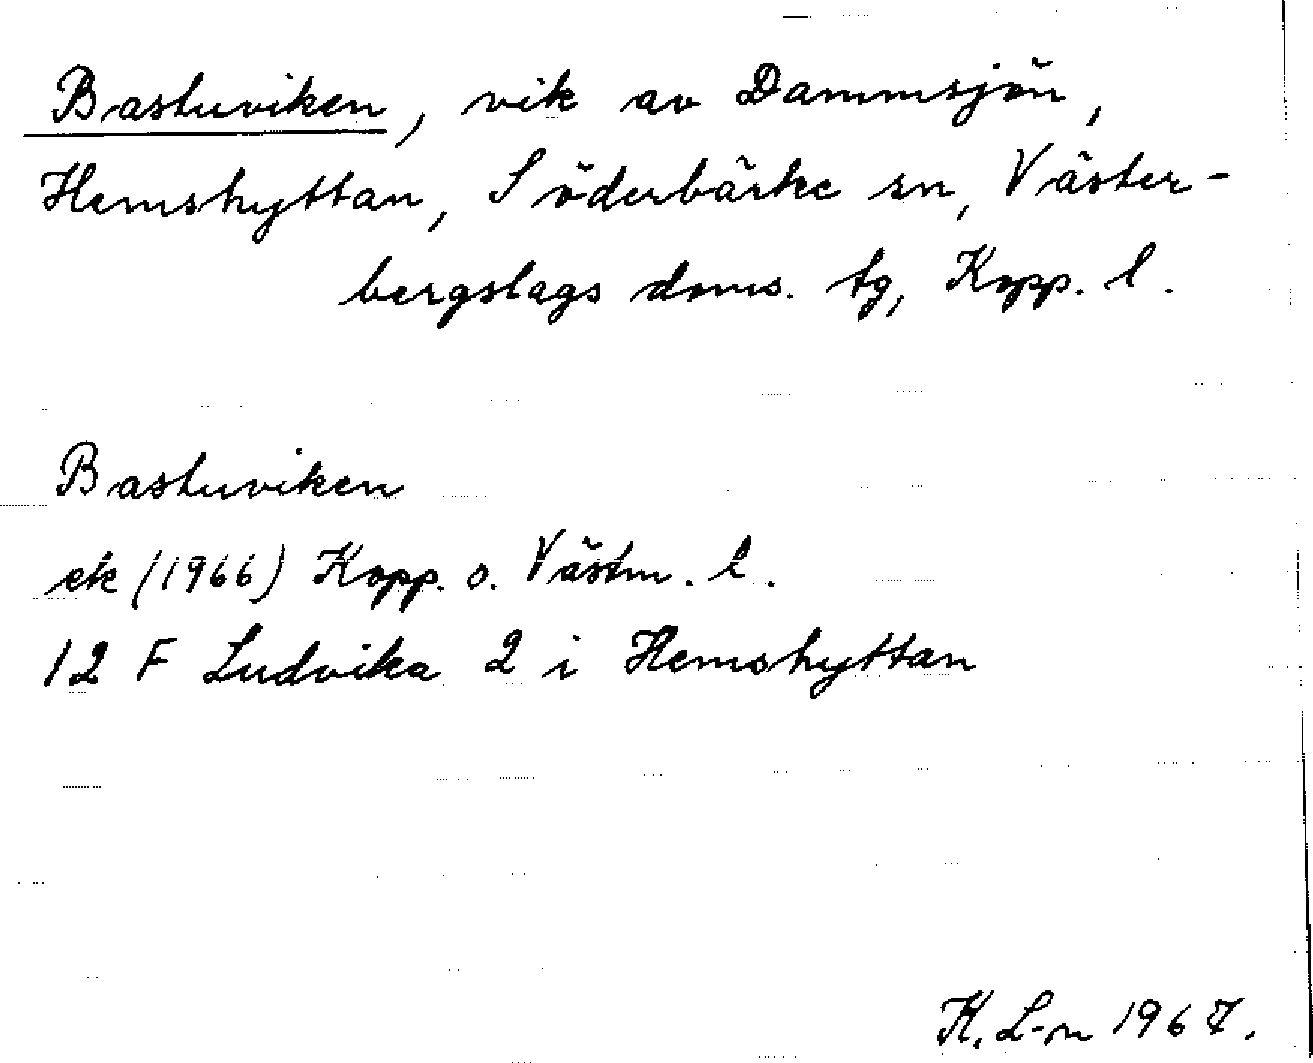 Bastuviken, vik av Dammsjön,
Hemshyttan, Söderbärke sn, Väster-
bergslags doms. tg, Kopp. l.
Bastuviken
ek (1966) Kopp. o. Västm. l.
12 F Ludvika 2 i Hemshyttan
K. L-n 1967.